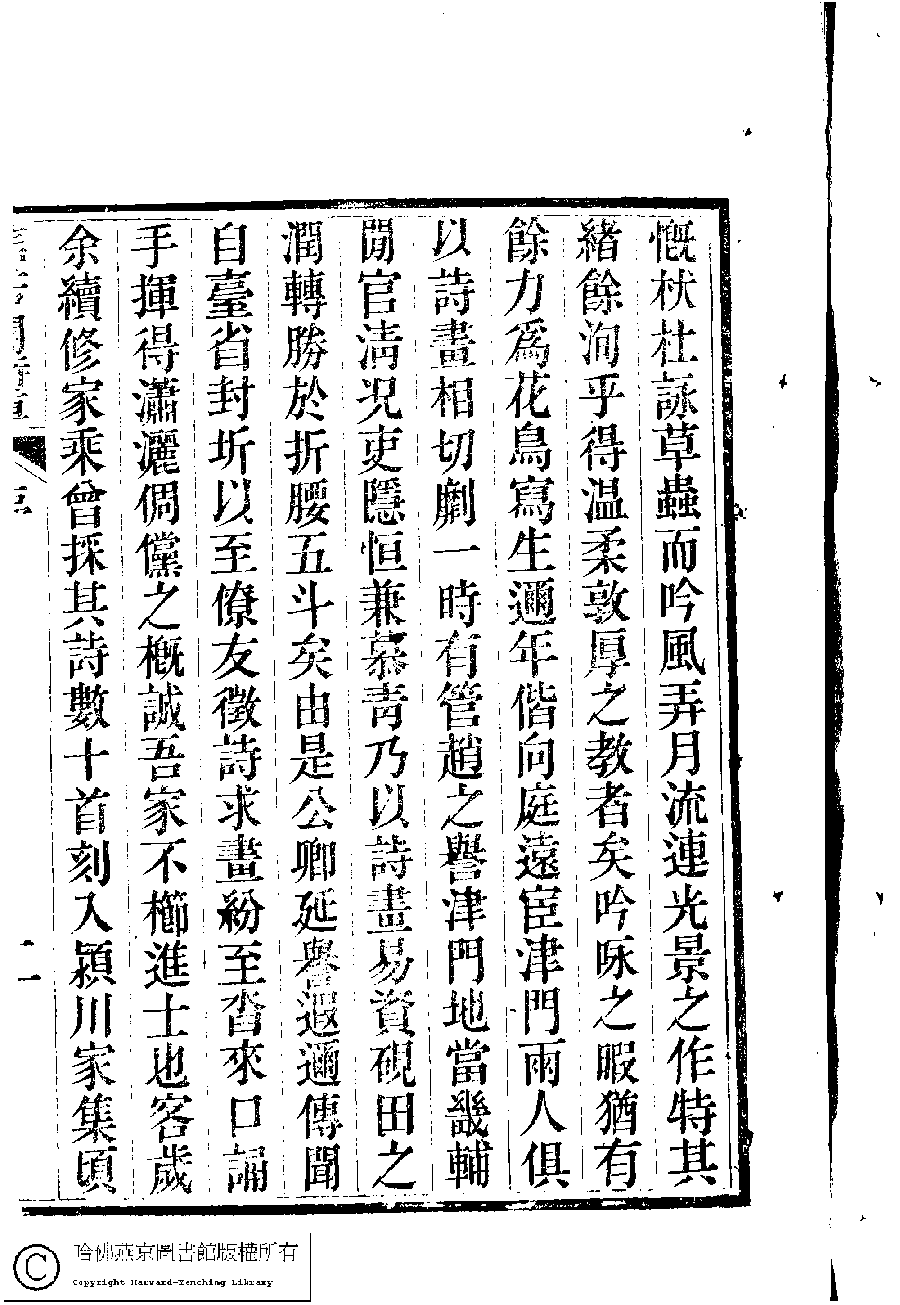 慨杕杜詠草蟲而吟風弄月流連光景之作特其
緒餘洵乎得温柔敦厚之教者矣吟咏之暇猶有
餘力爲花鳥寫生邇年偕向庭遠宦津門兩人俱
以詩畫相切劘一時有管趙之譽津門地當畿輔
閒官淸况吏隱恒兼慕靑乃以詩畫易資硯田之
潤轉勝於折腰五斗矣由是公卿延譽遐邇傳聞
自臺省封圻以至僚友徵詩求畫紛至沓來口誦
手揮得瀟灑倜儻之槪誠吾家不櫛進士也客歲
余續修家乘曾採其詩數十首刻入潁川家集頃
二
哈佛燕京圖書館版權所有
Copyright Harvard-Yenching Library